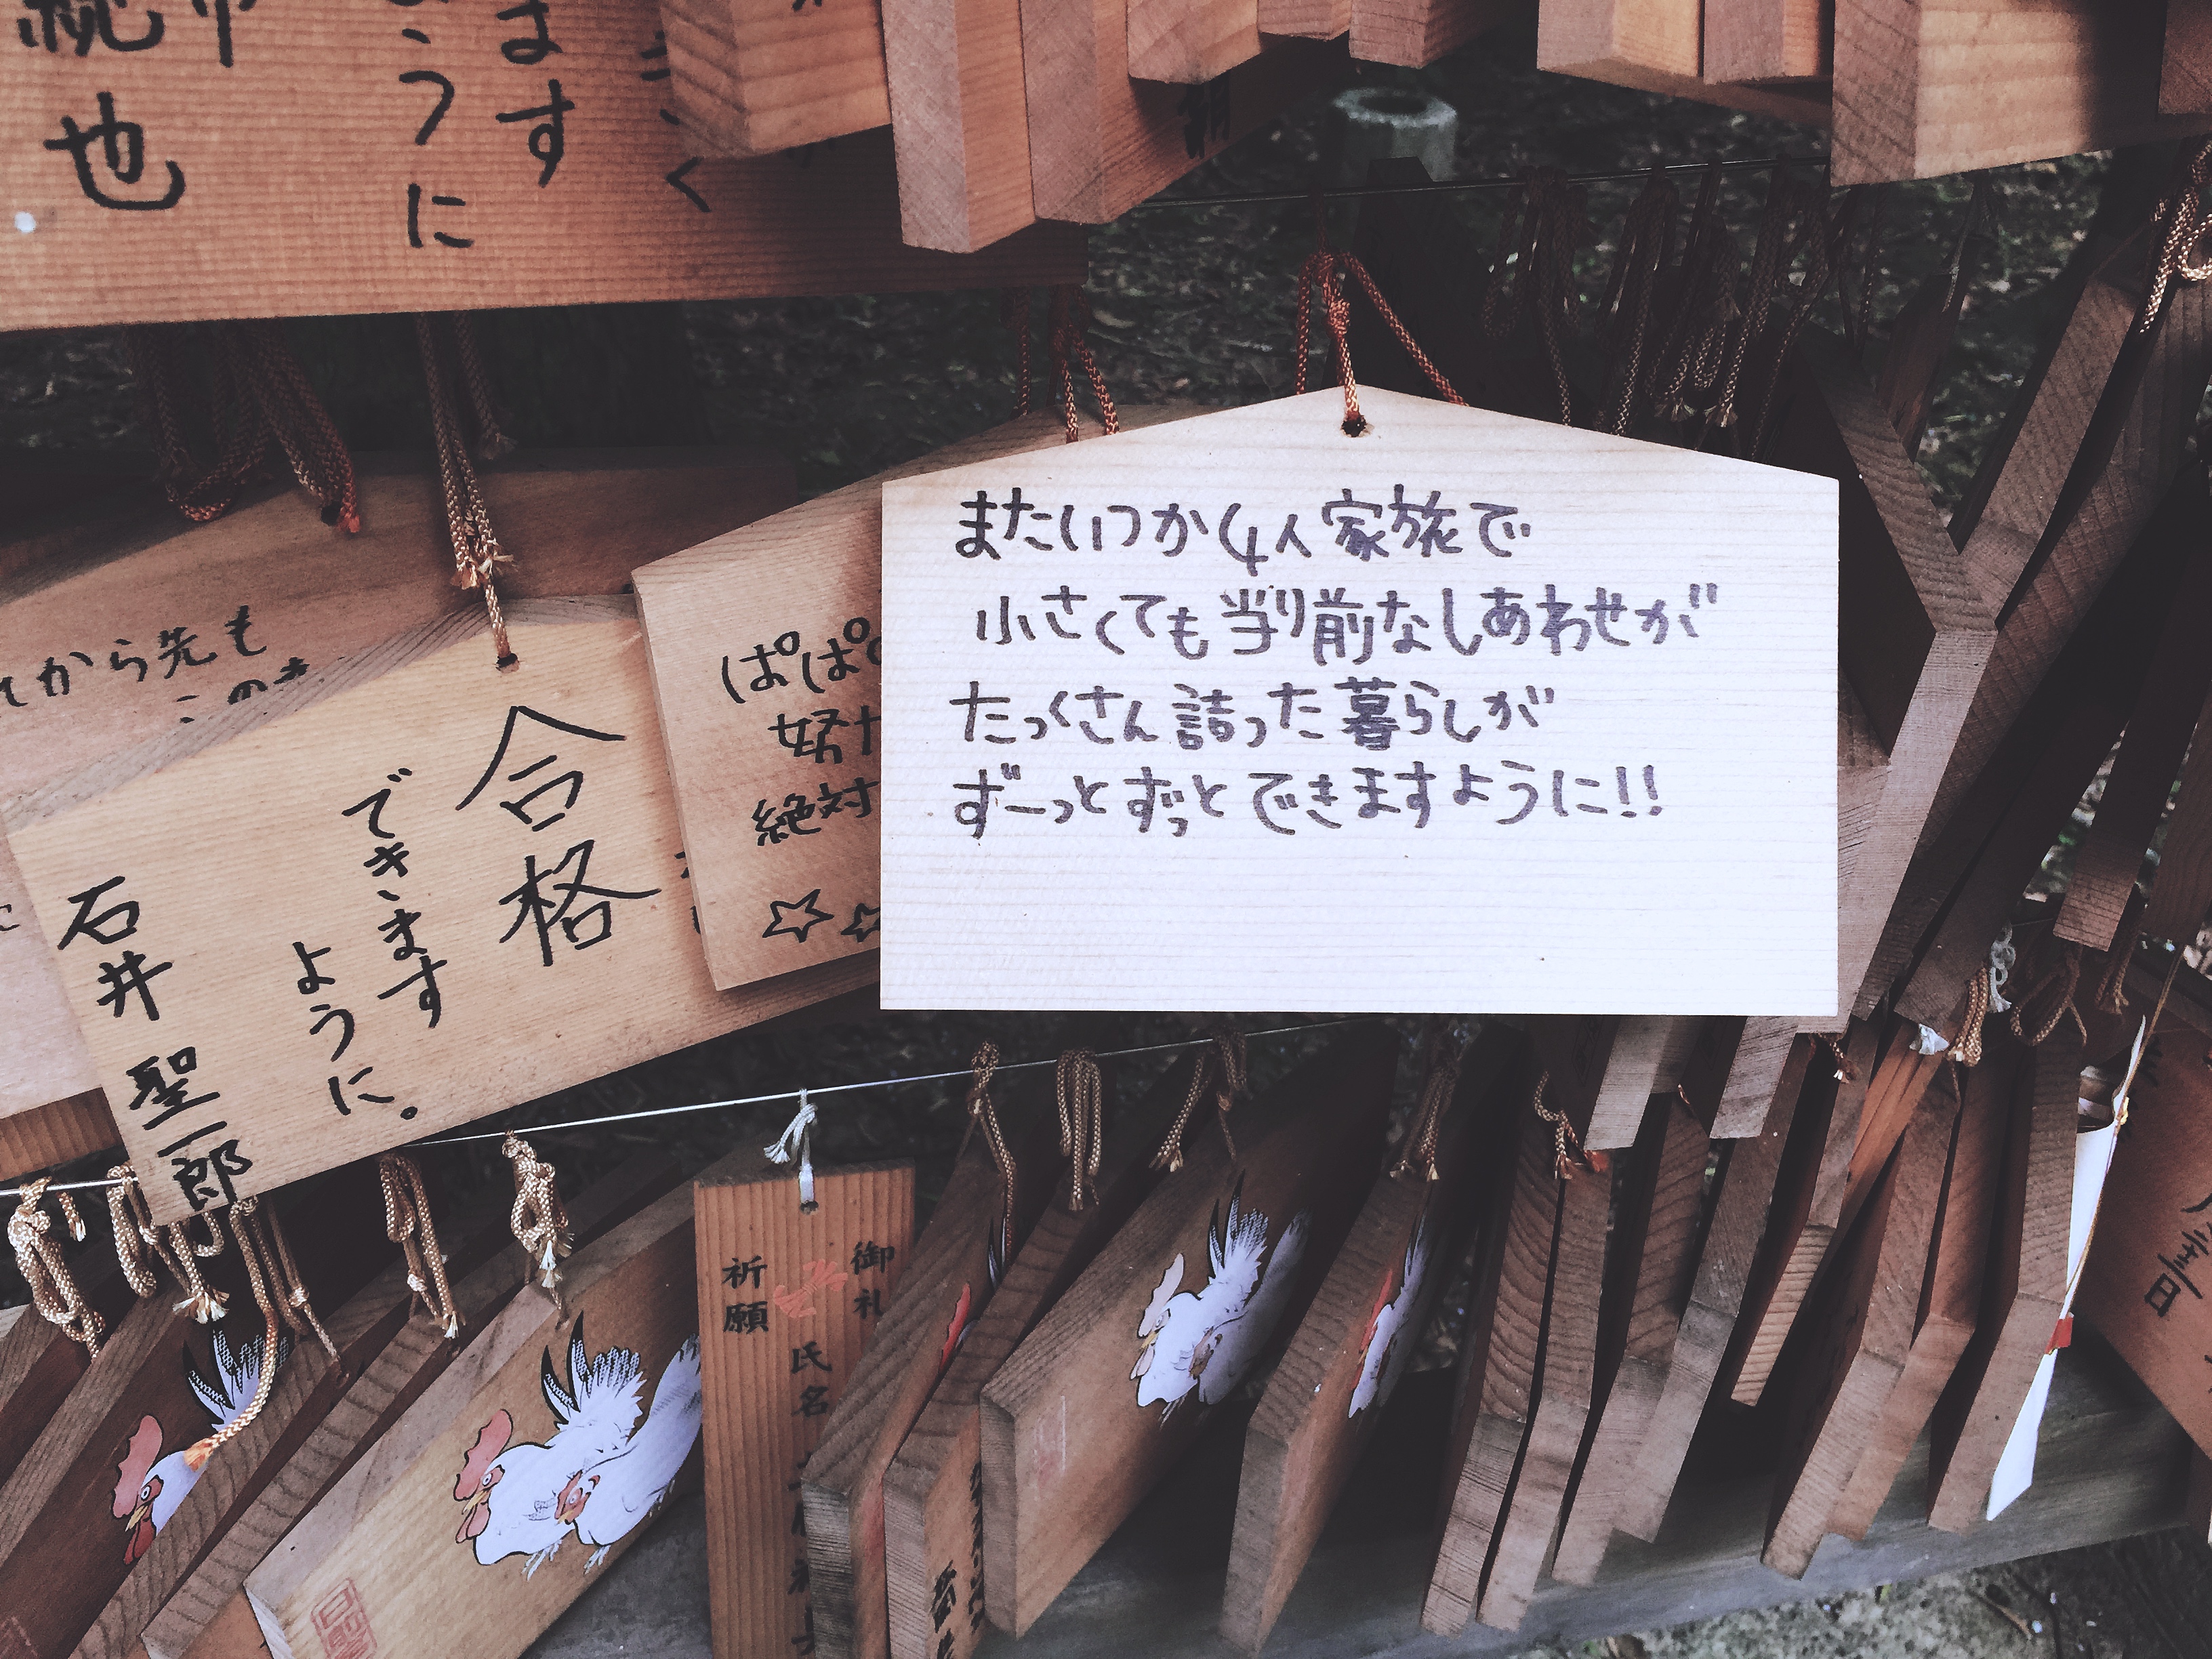 ます
ように
也
またいつか4人家族で
小さくても当り前なしあわせが
たくさん詰った暮らしが
ずーっとずっとできますように!!
から先も
ぱぱ
絶対
☆☆
合格
できます
ように。
石井聖一郎
御礼
祈願
氏名